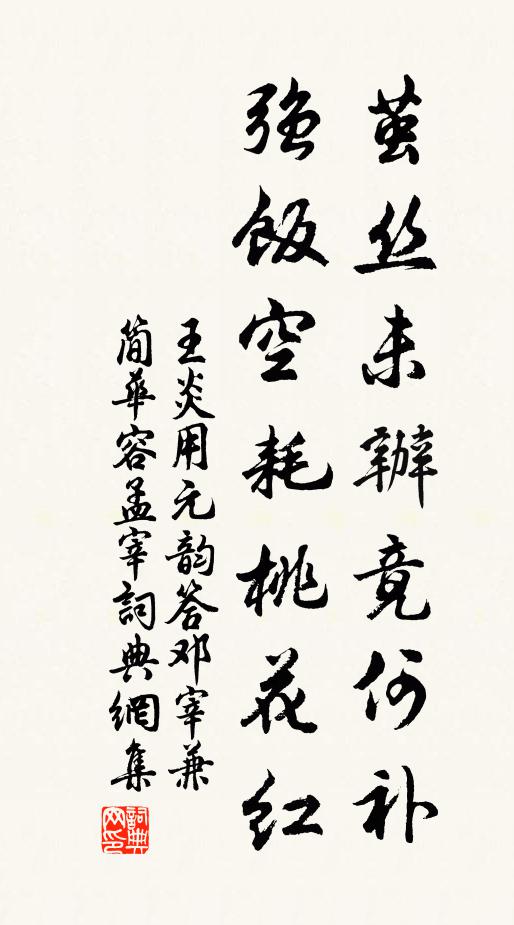 茧丝未辦竟何补
強飯空耗桃花红
王炎用元韵答邓宰兼
简華容孟宰詞典網集
詞典网印